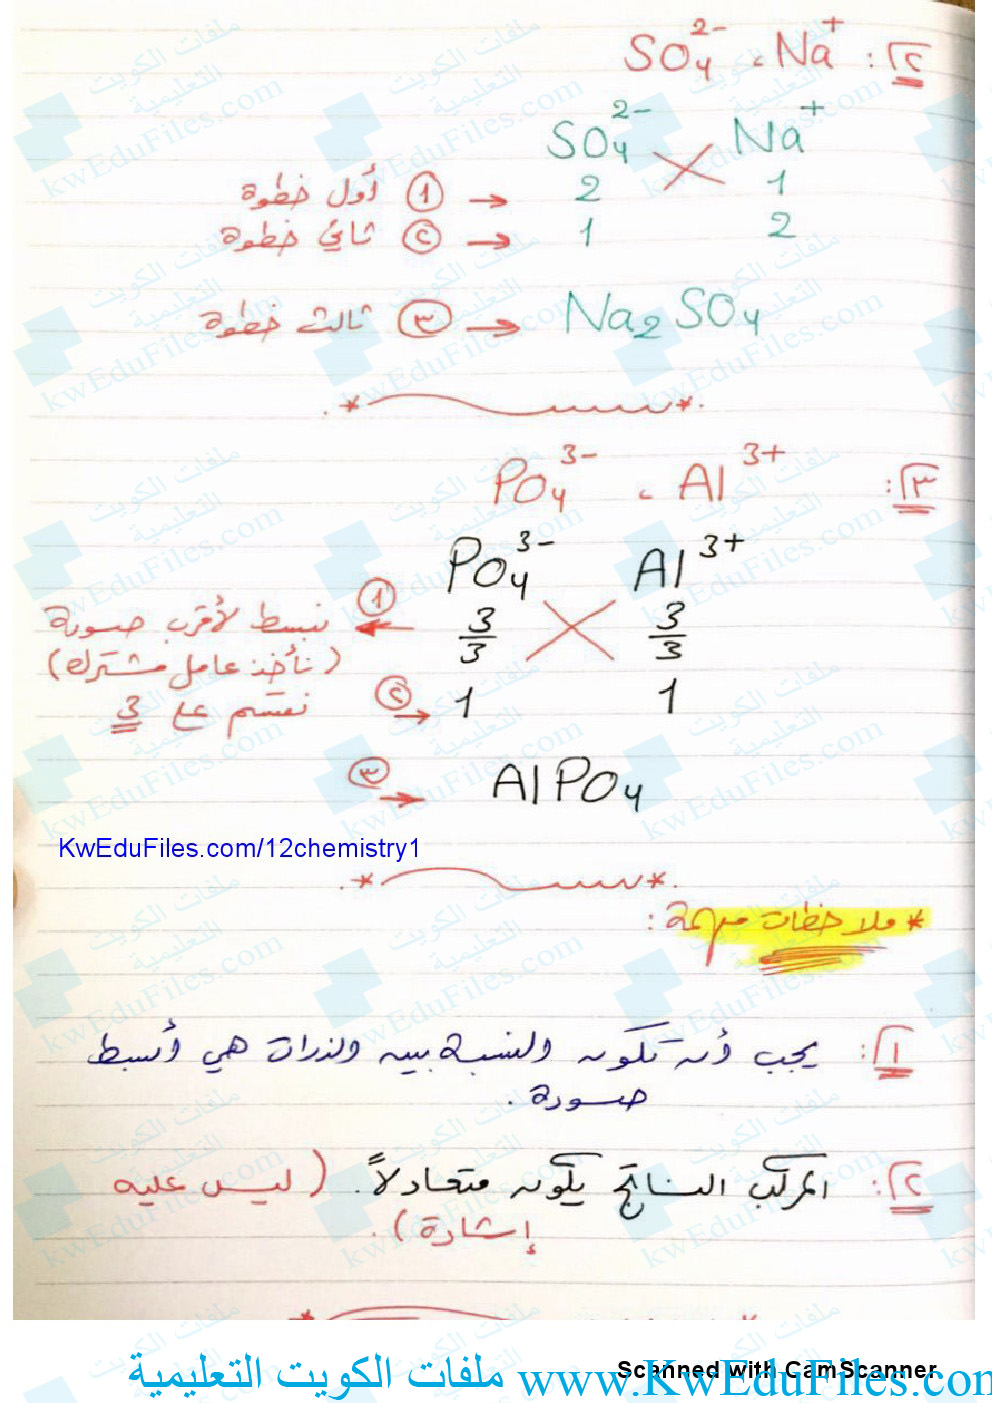 ٢: Na⁺ ، SO₄²⁻
SO₄²⁻ Na⁺
2 1 ← ① أول خطوة
1 2 ← ② ثاني خطوة
Na₂SO₄ ← ③ ثالث خطوة
٣: Al³⁺ ، PO₄³⁻
PO₄³⁻ Al³⁺
3/3 3/3 ① نبسط لأقرب صورة
(نأخذ عامل مشترك)
1 1 ② نقسم على 3
③ → AlPO₄
KwEduFiles.com/12chemistry1
* ملاحظات مهمة:
١: يجب أن تكون النسبة بين الذرات هي أبسط
صورة.
٢: المركب الناتج يكون متعادلاً. (ليس عليه
إشارة).
Scanned with CamScanner
www.KwEduFiles.com ملفات الكويت التعليمية